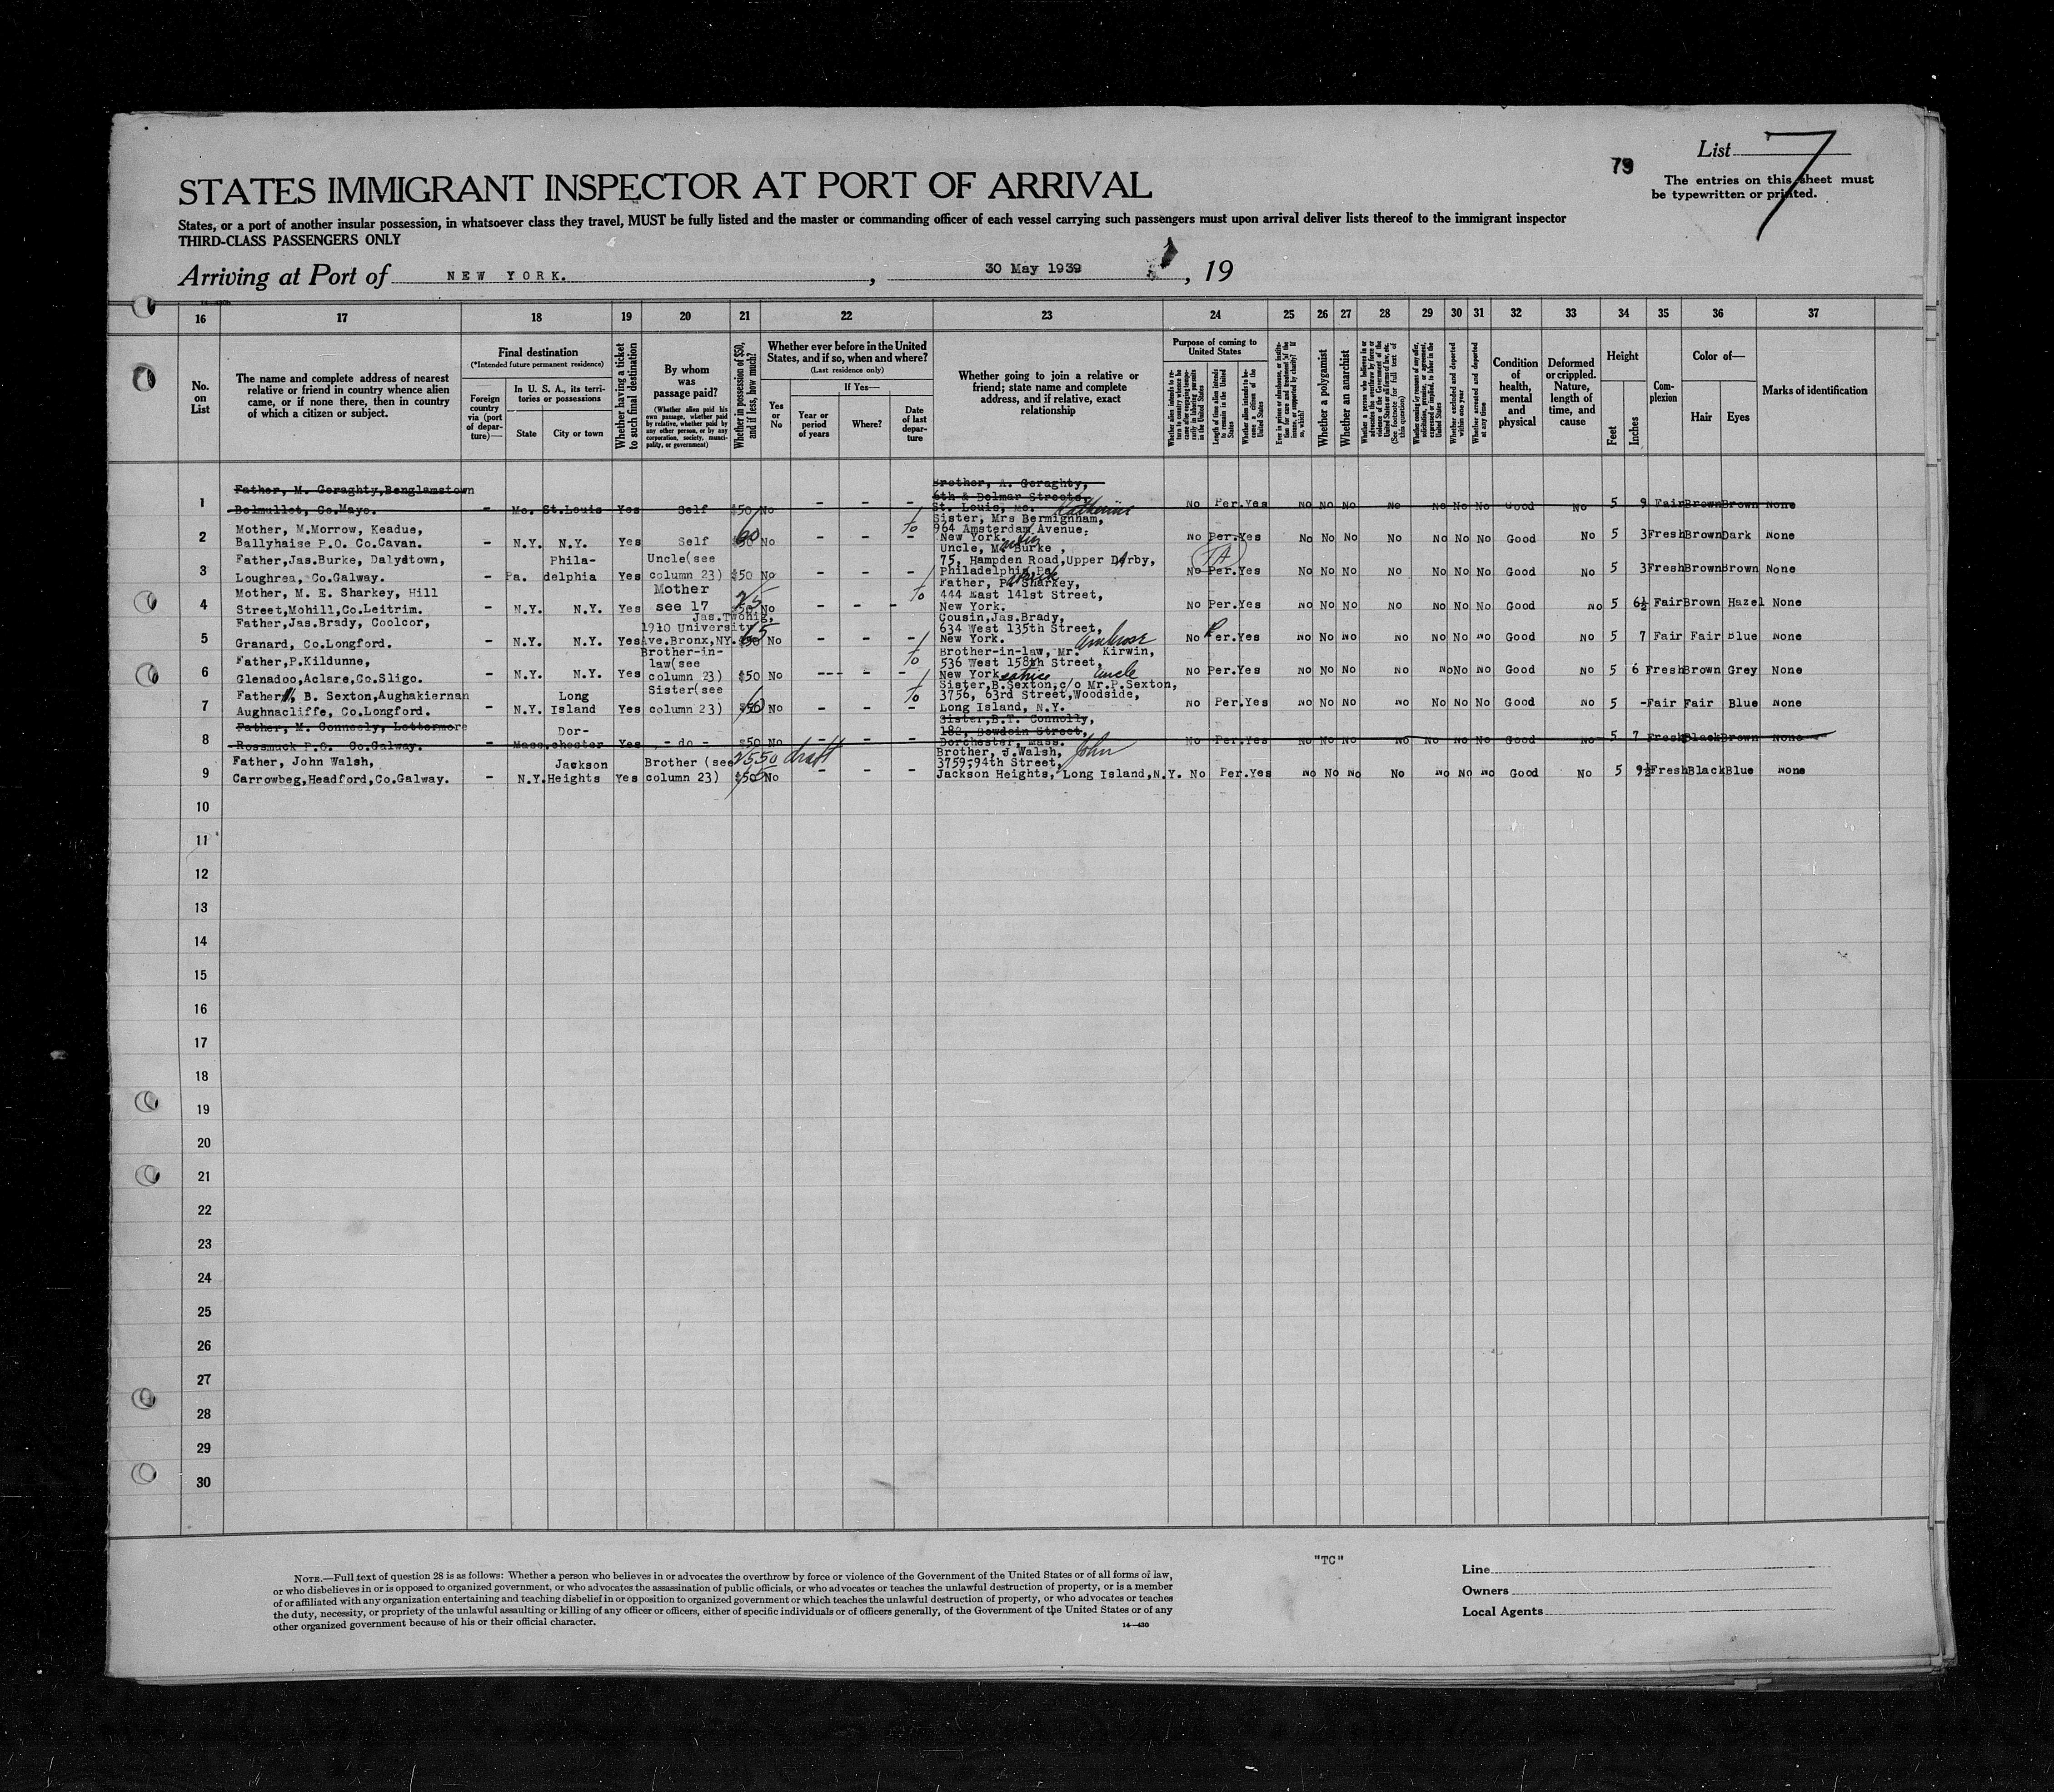 List 7
79
The entries on this sheet must
be typewritten or printed.
STATES IMMIGRANT INSPECTOR AT PORT OF ARRIVAL
States, or a port of another insular possession, in whatsoever class they travel, MUST be fully listed and the master or commanding officer of each vessel carrying such passengers must upon arrival deliver lists thereof to the immigrant inspector
THIRD-CLASS PASSENGERS ONLY
Arriving at Port of NEW YORK. , 30 May 1939 , 19
16 17 18 19 20 21 22 23 24 25 26 27 28 29 30 31 32 33 34 35 36 37
No. on List
The name and complete address of nearest relative or friend in country whence alien came, or if none there, then in country of which a citizen or subject.
Final destination
(*Intended future permanent residence)
Foreign country via (port of departure)—
In U. S. A., its territories or possessions
State
City or town
Whether having a ticket to such final destination
By whom was passage paid?
(Whether alien paid his own passage, whether paid by relative, whether paid by any other person, or by any corporation, society, municipality, or government)
Whether in possession of $50, and if less, how much?
Whether ever before in the United States, and if so, when and where?
(Last residence only)
Yes or No
If Yes—
Year or period of years
Where?
Date of last departure
Whether going to join a relative or friend; state name and complete address, and if relative, exact relationship
Purpose of coming to United States
Length of time alien intends to remain in the United States
Whether alien intends to become a citizen of the United States
Whether a polygamist
Whether an anarchist
Whether excluded and deported within one year
Whether arrested and deported at any time
Condition of health, mental and physical
Deformed or crippled. Nature, length of time, and cause
Height
Feet
Inches
Complexion
Color of—
Hair
Eyes
Marks of identification
1 Father, M. Geraghty,Benglamstown Belmullet, Co.Mayo. - Mo. St.Louis Yes Self $50 No - - - Brother, A. Geraghty, 6th & Delmar Streets, St. Louis, Mo. No Per. Yes No No No No No No No Good No 5 9 Fair Brown Brown None
2 Mother, M.Morrow, Keadue, Ballyhaise P.O. Co.Cavan. - N.Y. N.Y. Yes Self $50 60 No - - - Sister, Mrs Bermignham, Katherine 964 Amsterdam Avenue. New York. No Per. Yes No No No No No No No Good No 5 3 Fresh Brown Dark None
3 Father,Jas.Burke, Dalystown, Loughrea, Co.Galway. - Pa. Philadelphia Yes Uncle(see column 23) $50 No - - - Uncle, M. Burke , 75, Hampden Road,Upper Darby, Philadelphia,Pa. No Per. Yes No No No No No No No Good No 5 3 Fresh Brown Brown None
4 Mother, M. E. Sharkey, Hill Street,Mohill,Co.Leitrim. - N.Y. N.Y. Yes Mother see 17 $50 25 No - - - Father, P. Sharkey, 444 East 141st Street, New York. No Per. Yes No No No No No No No Good No 5 6½ Fair Brown Hazel None
5 Father,Jas.Brady, Coolcor, Granard, Co.Longford. - N.Y. N.Y. Yes Jas.Twohig, 1910 University Ave.Bronx,NY. $50 65 No - - - Cousin,Jas.Brady, 634 West 135th Street, New York. No Per. Yes No No No No No No No Good No 5 7 Fair Fair Blue None
6 Father,P.Kildunne, Glenadoo,Aclare,Co.Sligo. - N.Y. N.Y. Yes Brother-in-law(see column 23) $50 No - - - Brother-in-law, Mr. Ambrose Kirwin, 536 West 158th Street, New York. No Per. Yes No No No No No No No Good No 5 6 Fresh Brown Grey None
7 Father, B. Sexton,Aughakiernan Aughnacliffe, Co.Longford. - N.Y. Long Island Yes Sister(see column 23) $50 No - - - Sister,B.Sexton,c/o Mr.P.Sexton, uncle 3756, 63rd Street,Woodside, Long Island, N.Y. No Per. Yes No No No No No No No Good No 5 - Fair Fair Blue None
8 Father, M. Conneely, Lettermore Rossmuck P.O. Co.Galway. - Mass. Dorchester Yes - do - $50 No - - - Sister,B.T. Connolly, 182, Bowdoin Street, Dorchester, Mass. No Per. Yes No No No No No No No Good No 5 7 Fresh Black Brown None
9 Father, John Walsh, Carrowbeg,Headford,Co.Galway. - N.Y. Jackson Heights Yes Brother (see column 23) $50 2550 draft No - - - Brother, J.Walsh, John 3759-94th Street, Jackson Heights, Long Island,N.Y. No Per. Yes No No No No No No No Good No 5 9½ Fresh Black Blue None
10
11
12
13
14
15
16
17
18
19
20
21
22
23
24
25
26
27
28
29
30
"TC"
NOTE.—Full text of question 28 is as follows: Whether a person who believes in or advocates the overthrow by force or violence of the Government of the United States or of all forms of law,
or who disbelieves in or is opposed to organized government, or who advocates the assassination of public officials, or who advocates or teaches the unlawful destruction of property, or is a member
of or affiliated with any organization entertaining and teaching disbelief in or opposition to organized government or which teaches the unlawful destruction of property, or who advocates or teaches
the duty, necessity, or propriety of the unlawful assaulting or killing of any officer or officers, either of specific individuals or of officers generally, of the Government of the United States or of any
other organized government because of his or their official character.
14—430
Line
Owners
Local Agents